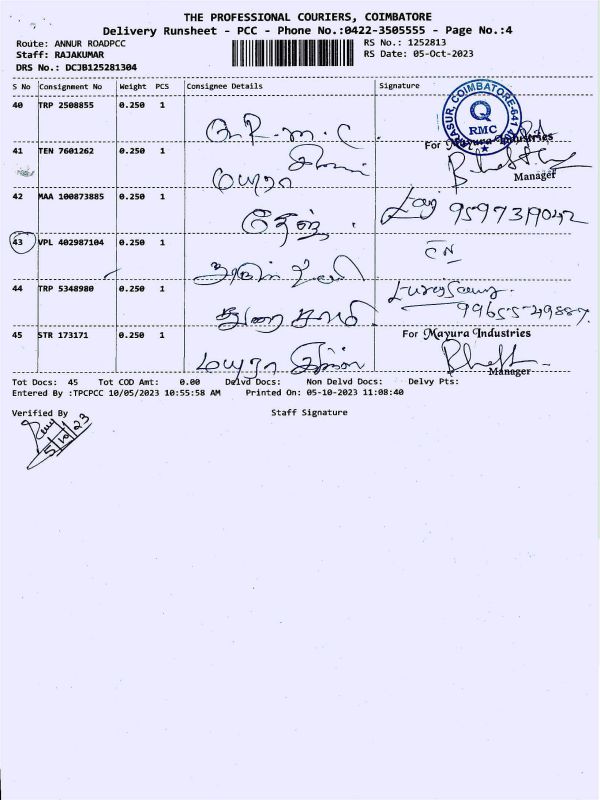 THE PROFESSIONAL COURIERS, COIMBATORE
Delivery Runsheet - PCC - Phone No.:0422-3505555 - Page No.:4
Route: ANNUR ROADPCC RS No.: 1252813
Staff: RAJAKUMAR RS Date: 05-Oct-2023
DRS No.: DCJB125281304
S No Consignment No Weight PCS Consignee Details Signature
40 TRP 2508855 0.250 1
Q.R.M.C
RMC
For Mayura Industries
41 TEN 7601262 0.250 1
மயூரா
Manager
42 MAA 100873885 0.250 1
9597319042
43 VPL 402987104 0.250 1
44 TRP 5348980 0.250 1
99655-49887
துரைசாமி
45 STR 173171 0.250 1 For Mayura Industries
மயூரா
Manager
Tot Docs: 45 Tot COD Amt: 0.00 Delvd Docs: Non Delvd Docs: Delvy Pts:
Entered By :TPCPCC 10/05/2023 10:55:58 AM Printed On: 05-10-2023 11:08:40
Verified By Staff Signature
5/10/23